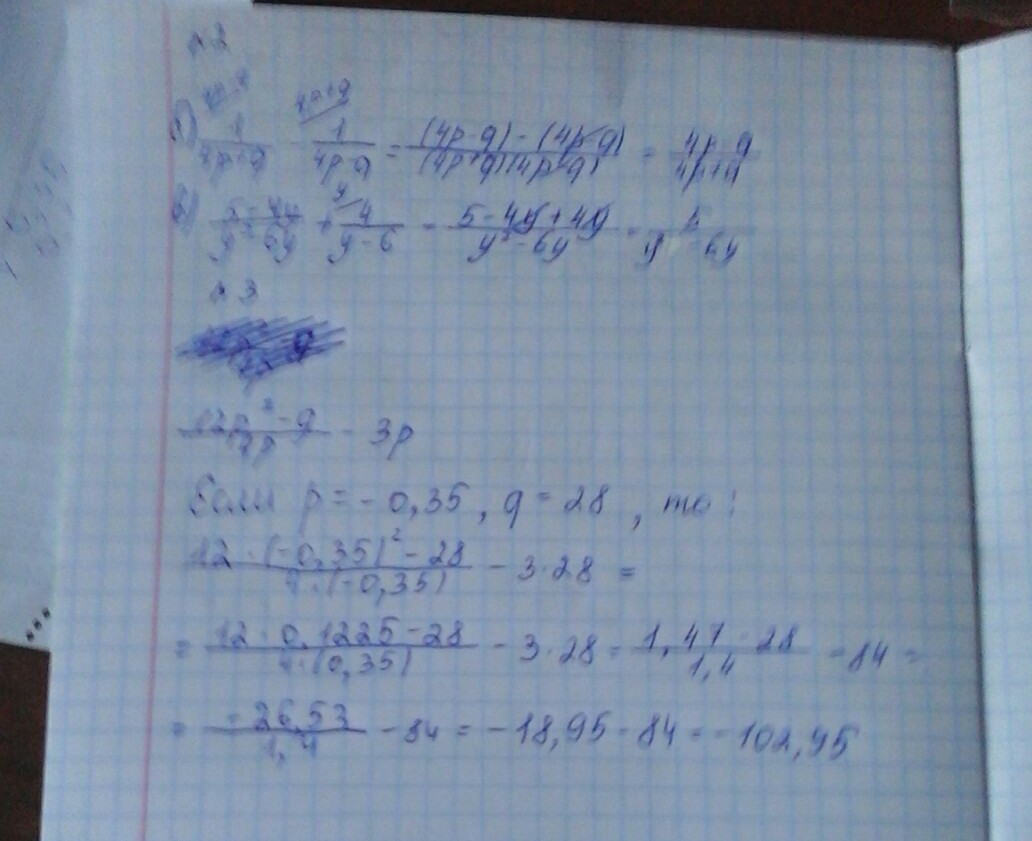 №2
1/(4p+q) - 1/(4p-q) = ((4p-q)-(4p-q))/((4p+q)(4p-q)) = (4p-q)/(4p+q)
б) (5-4y)/(y²-6y) + 4/(y-6) = (5-4y+4y)/(y²-6y) = 5/(y²-6y)
№3
(12p²-q)/4p - 3p
Если p = -0,35, q = 28, то:
(12·(-0,35)²-28)/(4·(-0,35)) - 3·28 =
= (12·0,1225-28)/(4·(0,35)) - 3·28 = (1,47-28)/1,4 - 84 =
= -26,53/1,4 - 84 = -18,95 - 84 = -102,95